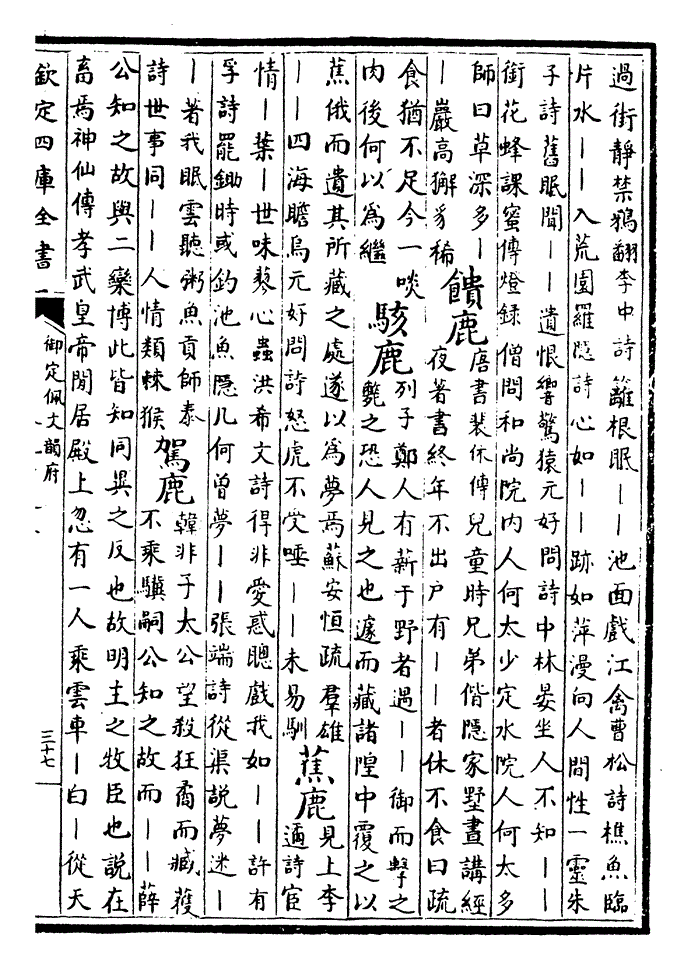 過街靜禁鴉翻李中詩籬根眠丨丨池面戲江禽曹松詩樵魚臨
片水丨丨入荒園羅隱詩心如丨丨跡如萍漫向人間性一靈朱
子詩舊眠聞丨丨遺恨響驚猿元好問詩中林晏坐人不知丨丨
銜花蜂課蜜傳燈録僧問和尚院内人何太少定水院人何太多
師曰草深多丨
丨巖高獬豸稀
饋鹿
唐書裴休傳兒童時兄弟偕隱家墅晝講經
夜著書終年不出户有丨丨者休不食曰疏
食猶不足今一啖
肉後何以為繼
駭鹿
列子鄭人有薪于野者遇丨丨御而擊之
斃之恐人見之也遽而藏諸隍中覆之以
蕉俄而遺其所藏之處遂以為夢焉蘇安恒疏羣雄
丨丨四海瞻烏元好問詩怒虎不受唾丨丨未易馴
蕉鹿
見上李
邇詩宦
情丨葉丨世味蓼心蟲洪希文詩得非愛惑聰戲我如丨丨許有
孚詩罷鋤時或釣池魚隱几何曾夢丨丨張端詩從渠説夢迷丨
丨著我眠雲聽粥魚貢師泰
詩世事同丨丨人情類棘猴
駕鹿
韓非子太公望殺狂矞而臧獲
不乘驥嗣公知之故而丨丨薛
公知之故與二欒博此皆知同異之反也故明主之牧臣也說在
畜焉神仙傳孝武皇帝閒居殿上忽有一人乘雲車丨白丨從天
欽定四庫全書
御定佩文韻府
三十七